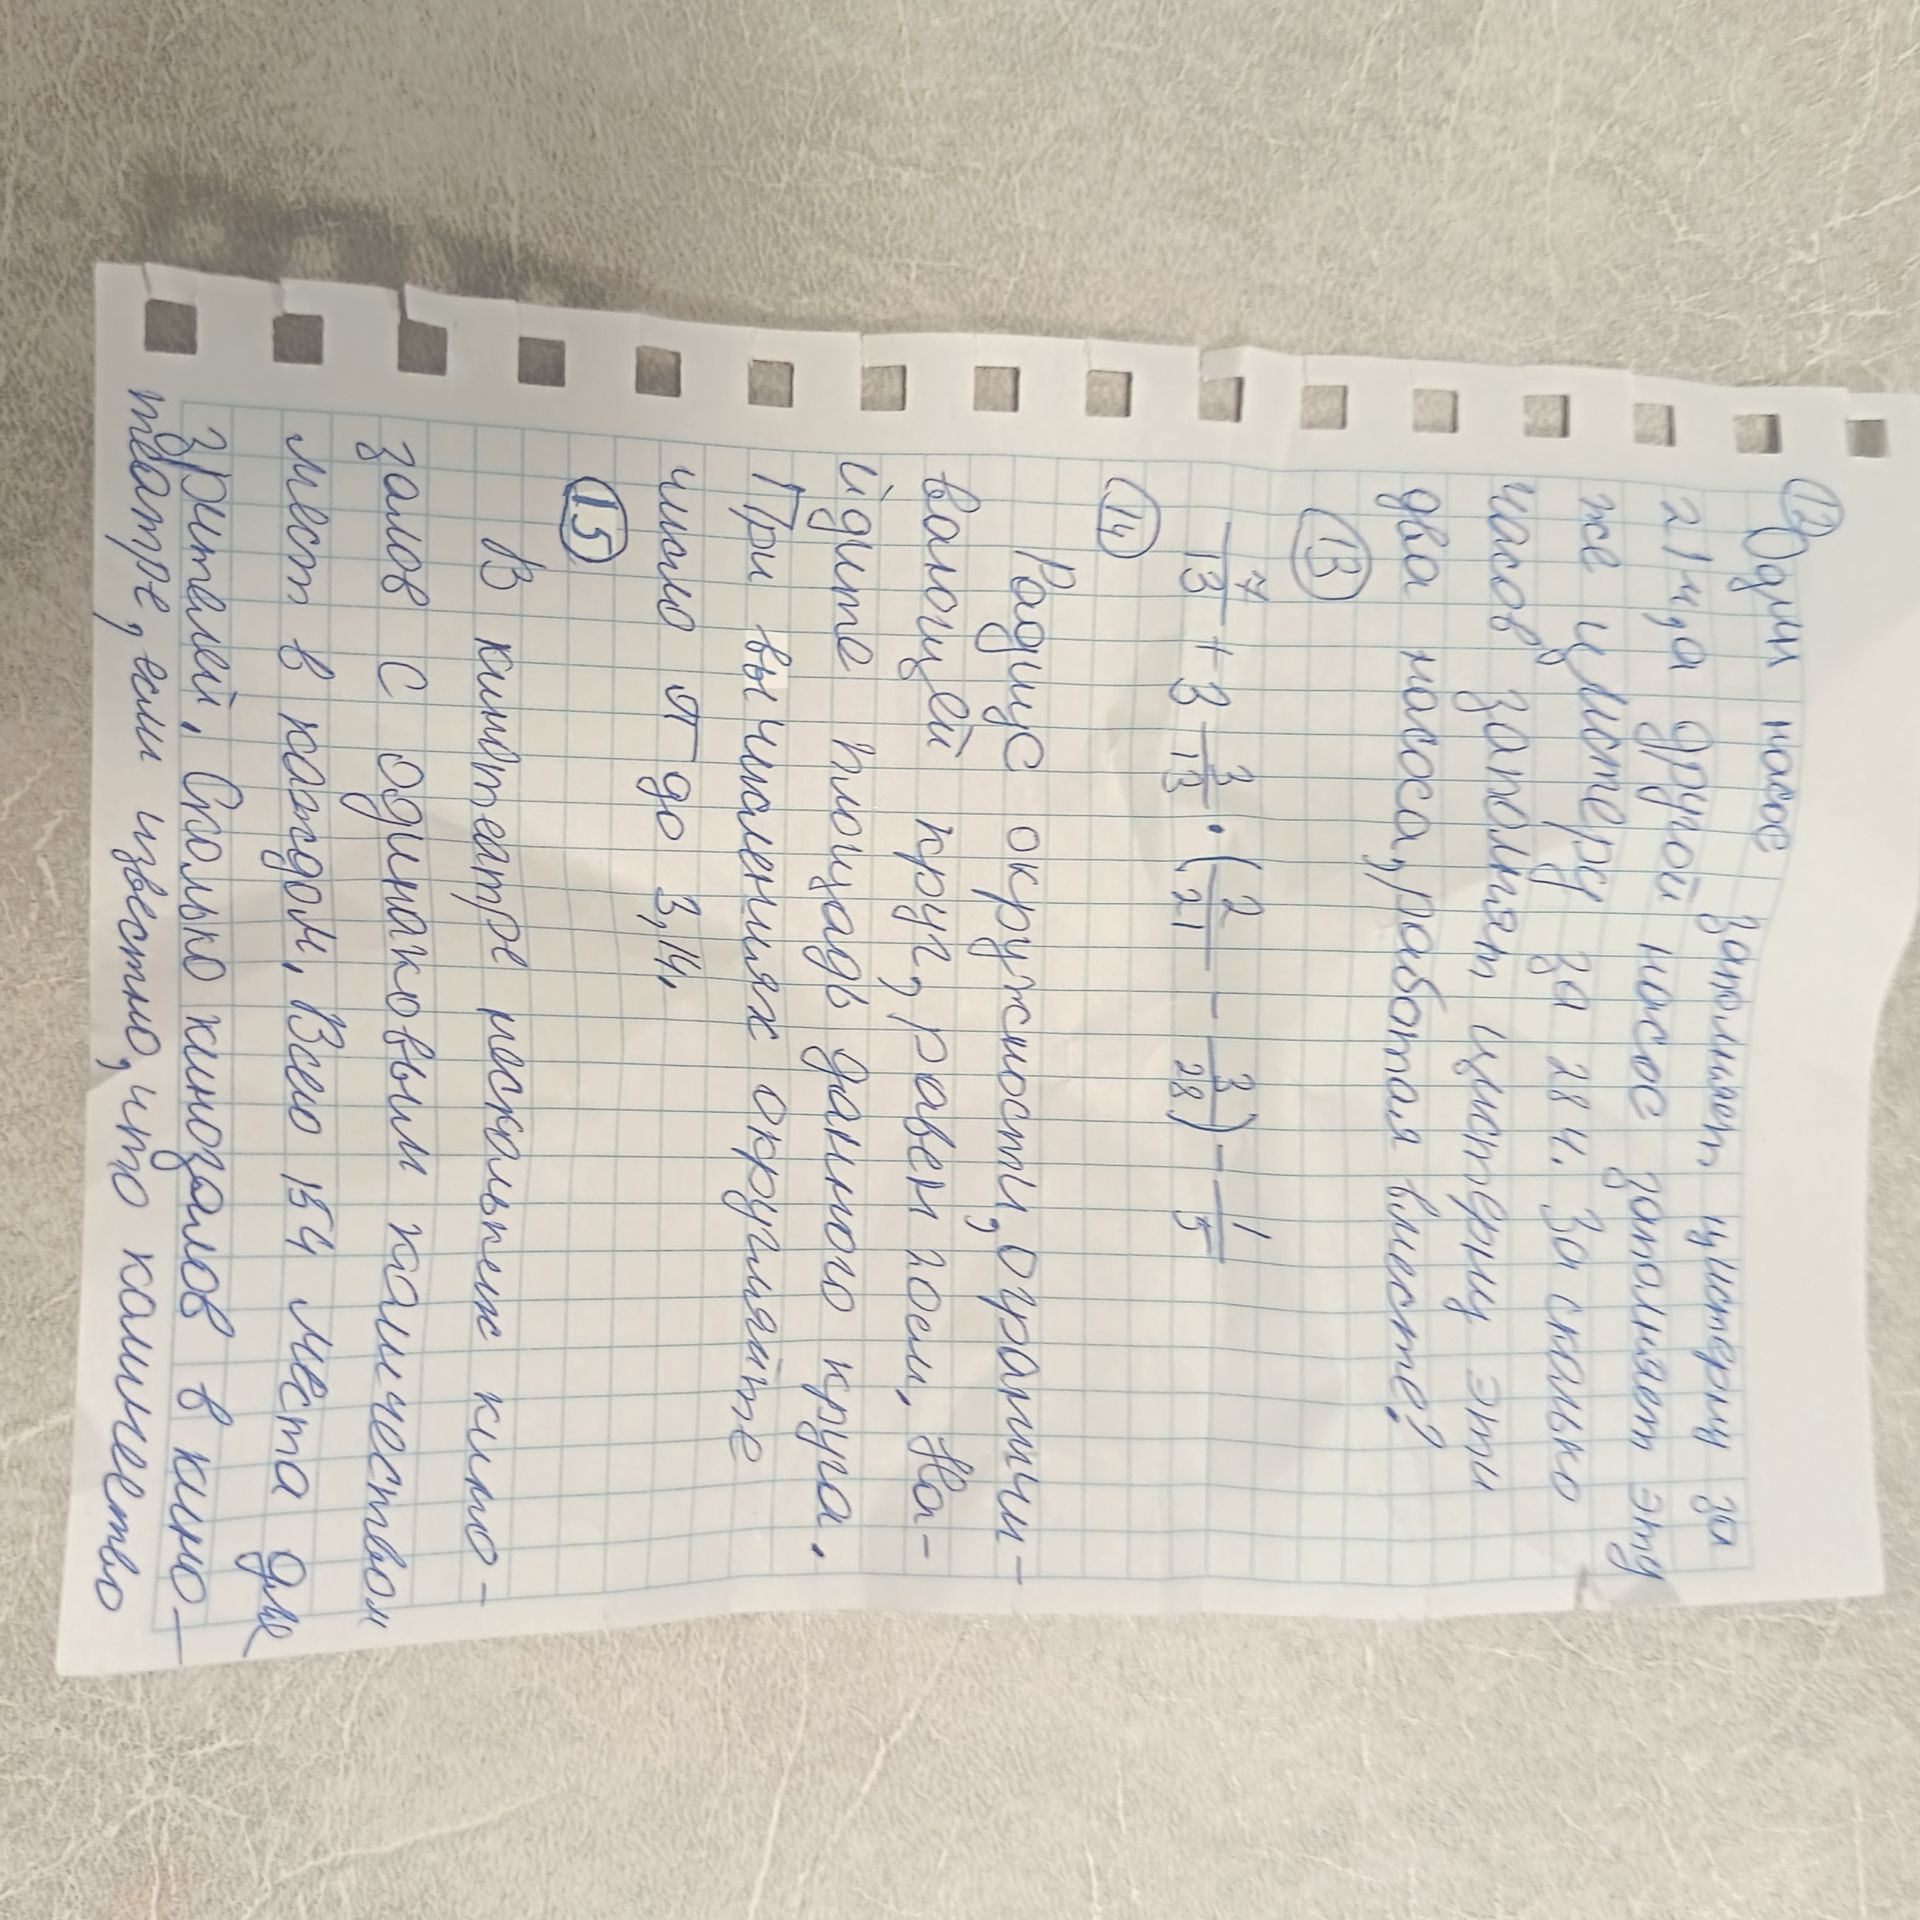 12
Один насос заполняет цистерну за
21 ч, а другой насос заполняет эту
же цистерну за 28 ч. За сколько
часов заполнят цистерну эти
два насоса, работая вместе?
13
7/13 + 3 3/13 · (2/21 - 3/28) - 1/5
14
Радиус окружности, ограничи-
вающей круг, равен 20см. На-
йдите площадь данного круга.
При вычислениях округляйте
число π до 3,14.
15
В кинотеатре несколько кино-
залов с одинаковым количеством
мест в каждом. Всего 154 места для
зрителей. Сколько кинозалов в кино-
театре, если известно, что количество